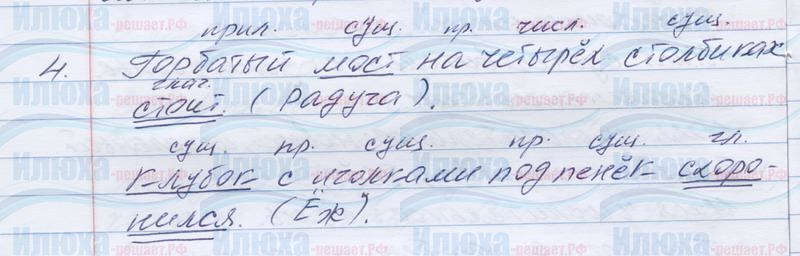 прил. сущ. пр. числ. сущ.
4. Горбатый мост на четырёх столбиках
глаг.
стоит. (Радуга).
сущ. пр. сущ. пр. сущ. гл.
Клубок с иголками под пенёк схоро-
нился. (Ёж).
Илюха-решает.РФ